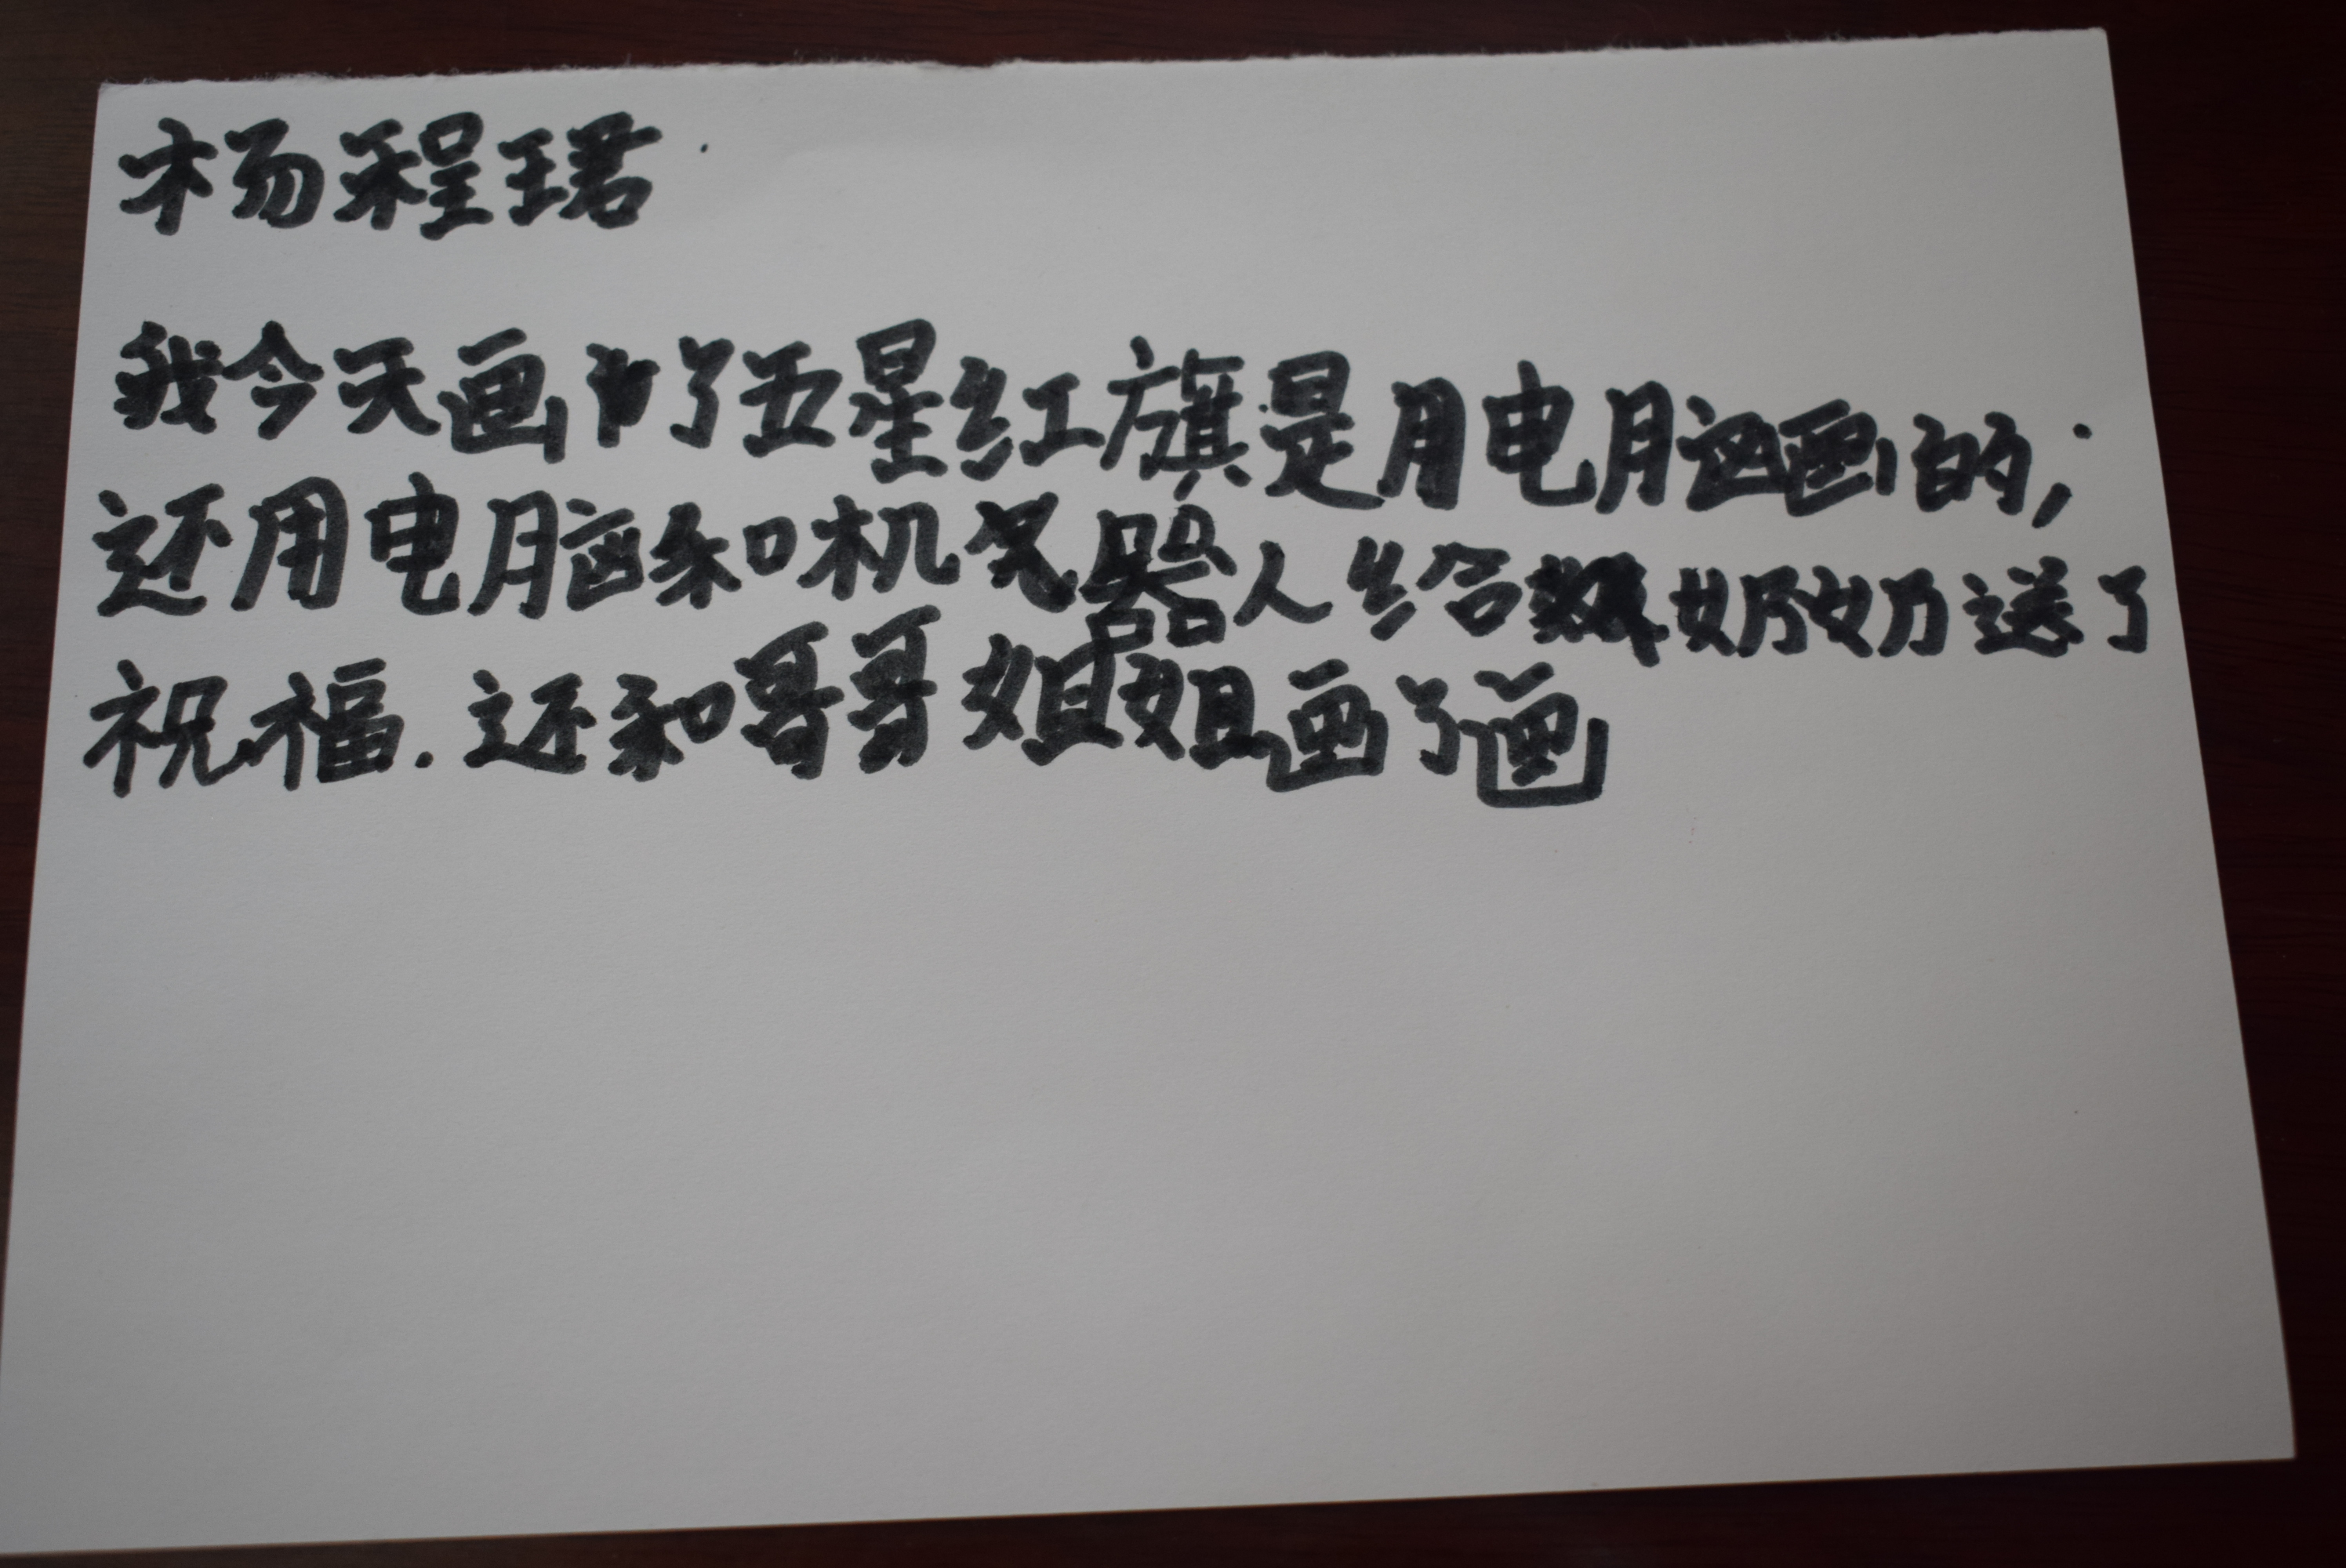 杨程珺
我今天画了五星红旗是用电脑画的,
还用电脑和机器人给奶奶送了
祝福.还和哥哥姐姐画了画